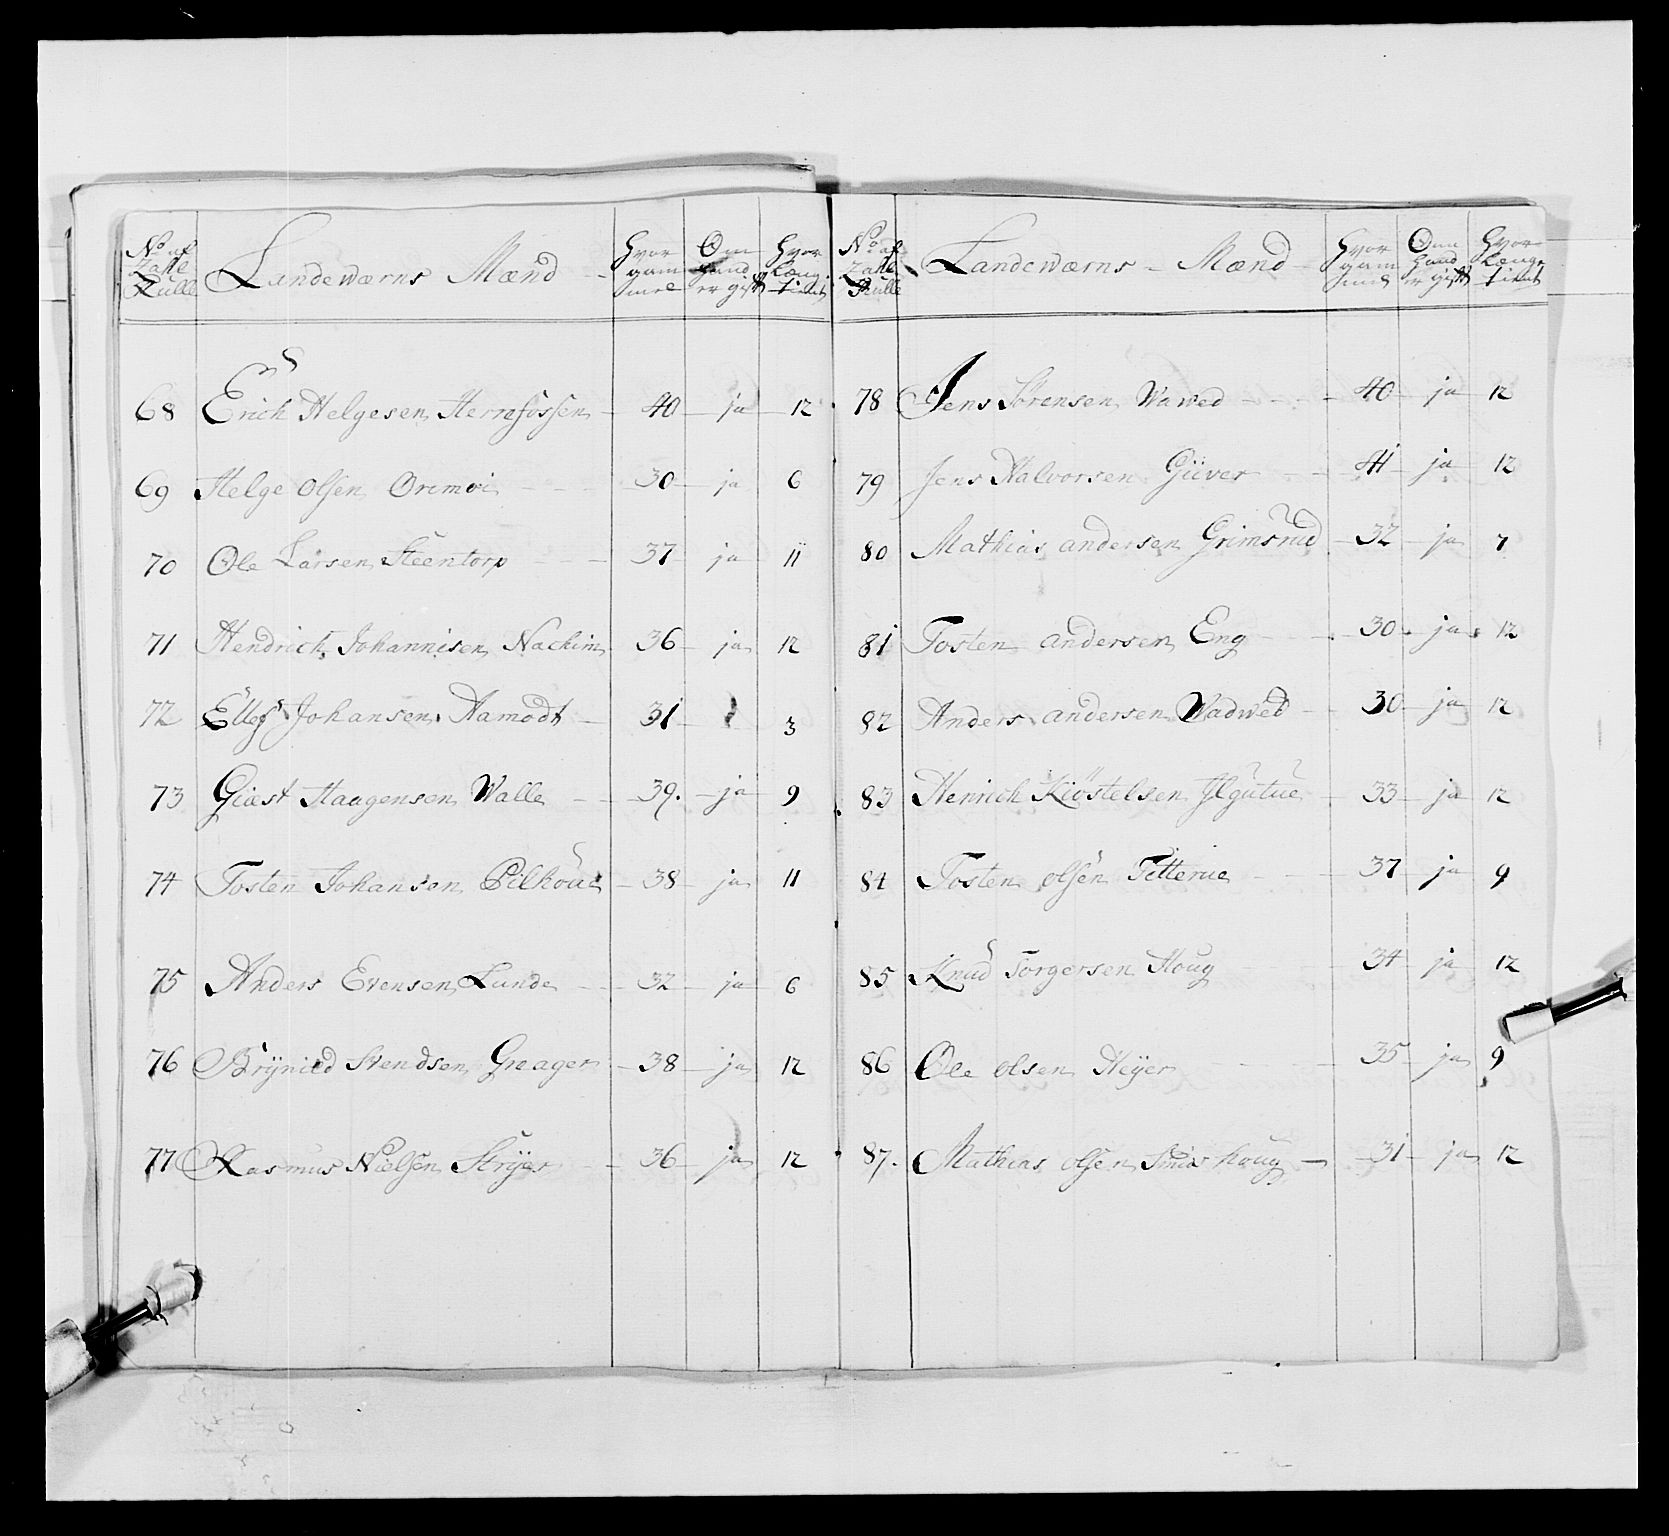 No af Zahl Rulle Landewærns Mænd Hvor gam mel Om hand er gift Hvor længe tient
68 Erich Helgesen Herrefossen 40 ja 12
69 Helge Olsen Oremoi 30 ja 6
70 Ole Larsen Steentorp 37 ja 11
71 Hendrich Johannisen Nachim 36 ja 12
72 Ellef Johansen Aamodt 31 3
73 Giæst Haagensen Walle 39. ja 9
74 Tosten Johansen 38 ja 11
75 Anders Evensen Lunde 32 ja 6
76 Brÿnild Svendsen Greager 38 ja 12
77 Rasmus Nielsen Strÿer 36 ja 12
No af Zahl Rulle Landewærns Mænd Hvor gam mel Om hand er gift Hvor længe tient
78 Jens Sørensen Wawed 40 ja 12
79 Jens Halvorsen Giiver 41 ja 12
80 Mathias andersen Grimsrud 32 ja 7
81 Tosten andersen Eng 30 ja 12
82 Anders andersen Wadwed 30 ja 12
83 Henrich Kiöstelsen 33 ja 12
84 Tosten olsen Titterue 37 ja 9
85 Knud Torgersen Houg 34 ja 12
86 Ole olsen Heÿer 35 ja 9
87. Mathias olsen 31 ja 12